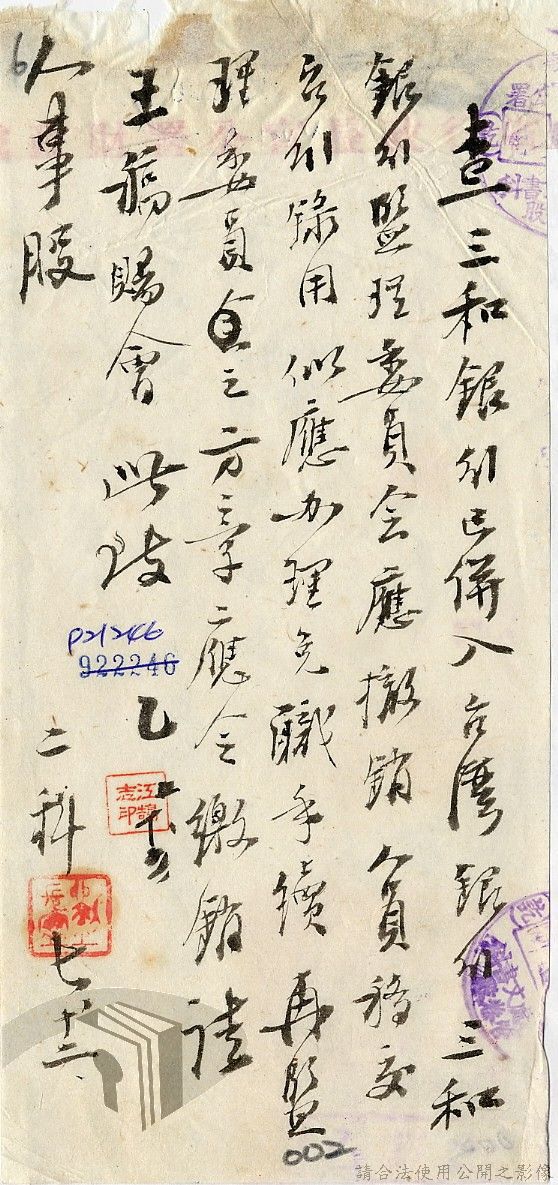 查三和銀行已併入台灣銀行三和
銀行監理委員会應撤銷人員移交
台行錄用似應办理免職手續再監
理委員会之方章亦應令繳銷請
主稿賜會 此致
人事股
二科 七、十二
P21246
922246
002
請合法使用公開之影像